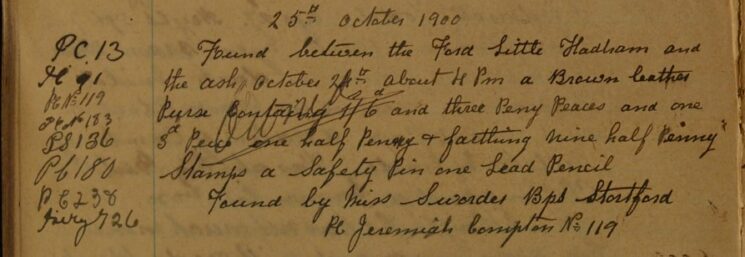 25th October 1900
PC. 13 Found between the Ford Little Hadham and
the ash October 24th about 4 Pm a Brown leather
Pc No 119 Purse Containing 1/6d and three Peny Peaces and one
Pc No 183 3d Peice one half Penny & farthing nine half Penny
PS 136 Stamps a Safety Pin one Lead Pencil
PC 180 Found by Miss Swordes Bps Stortford
PC 238 Pc Jeremiah Compton No 119
726